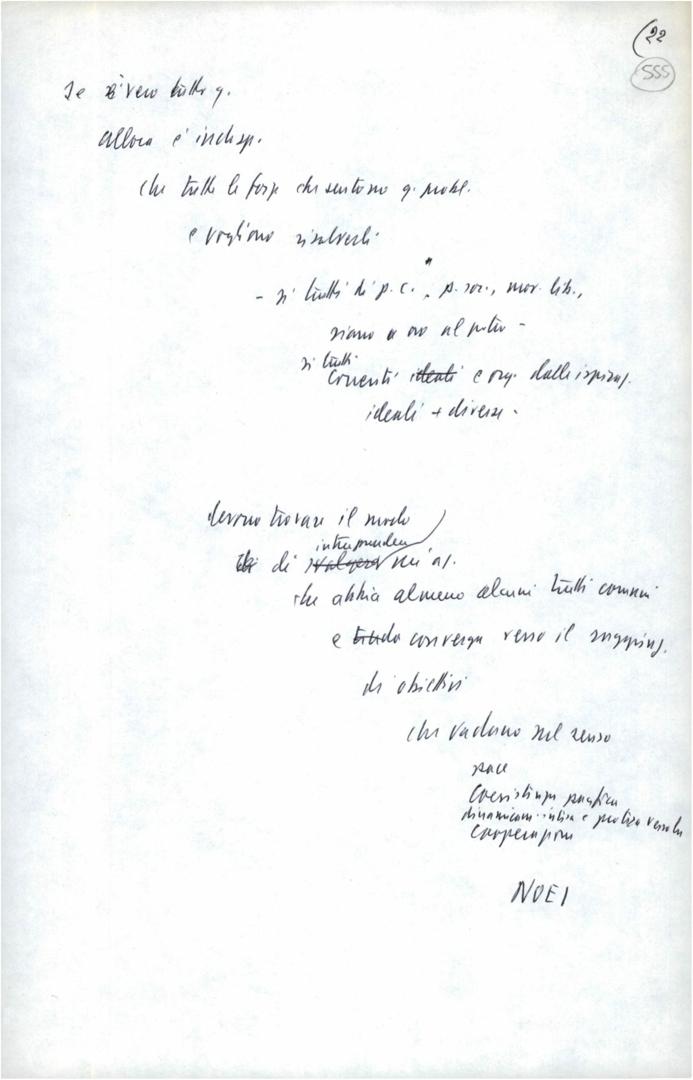 (22
555
Se è vero tutto q.
allora è indisp.
che tutte le forze che sentono q. probl.
e vogliono risolverli
- si tratti di p.c., p. soc., mov. lib.,
siano o no al potere -
si tratti
correnti ideali e org. dalle ispiraz.
ideali + diverse -
devono trovare il modo
intraprendere
di un'az.
che abbia almeno alcuni tratti comuni
e converga verso il raggiung.
di obiettivi
che vadano nel senso
pace
Coesistenza pacifica
dinamicam. intesa e protesa verso la
Cooperazione
NOEI